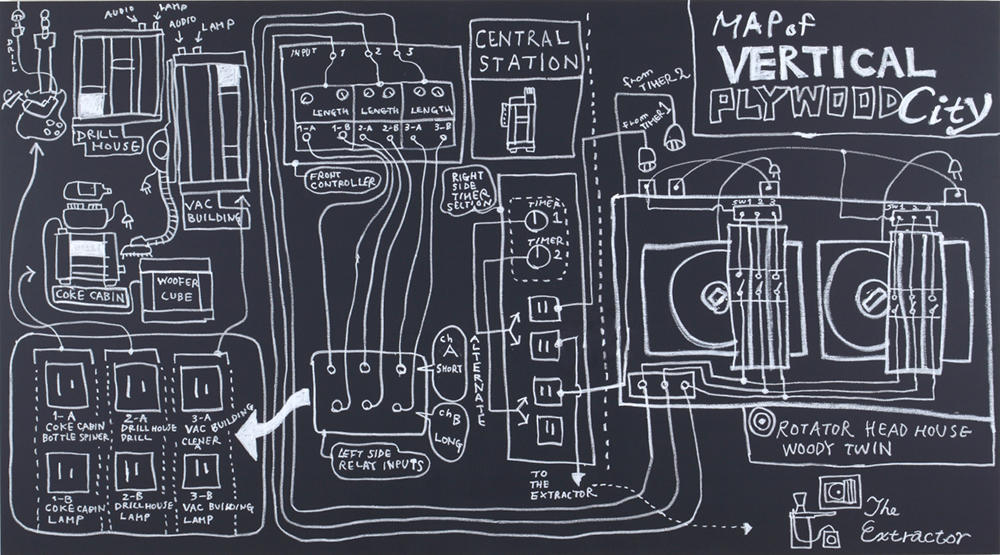 MAP of
VERTICAL
PLYWOOD City
CENTRAL
STATION
DRILL
AUDIO
LAMP
AUDIO
LAMP
DRILL
HOUSE
VAC
BUILDING
COKE CABIN
WOOFER
CUBE
INPUT 1 2 3
LENGTH LENGTH LENGTH
1-A 1-B 2-A 2-B 3-A 3-B
FRONT
CONTROLLER
RIGHT
SIDE
TIMER
SECTION
TIMER
1
TIMER
2
from
TIMER 2
from
TIMER 1
SW1 2 3
SW1 2 3
ch
A
SHORT
ch
B
LONG
ALTERNATE
LEFT SIDE
RELAY INPUTS
TO
THE
EXTRACTOR
1-A
COKE CABIN
BOTTLE SPINER
2-A
DRILLHOUSE
DRILL
3-A
VAC BUILDING
CLENER
1-B
COKE CABIN
LAMP
2-B
DRILLHOUSE
LAMP
3-B
VAC BUILDING
LAMP
ROTATOR HEAD HOUSE
WOODY TWIN
The
Extractor